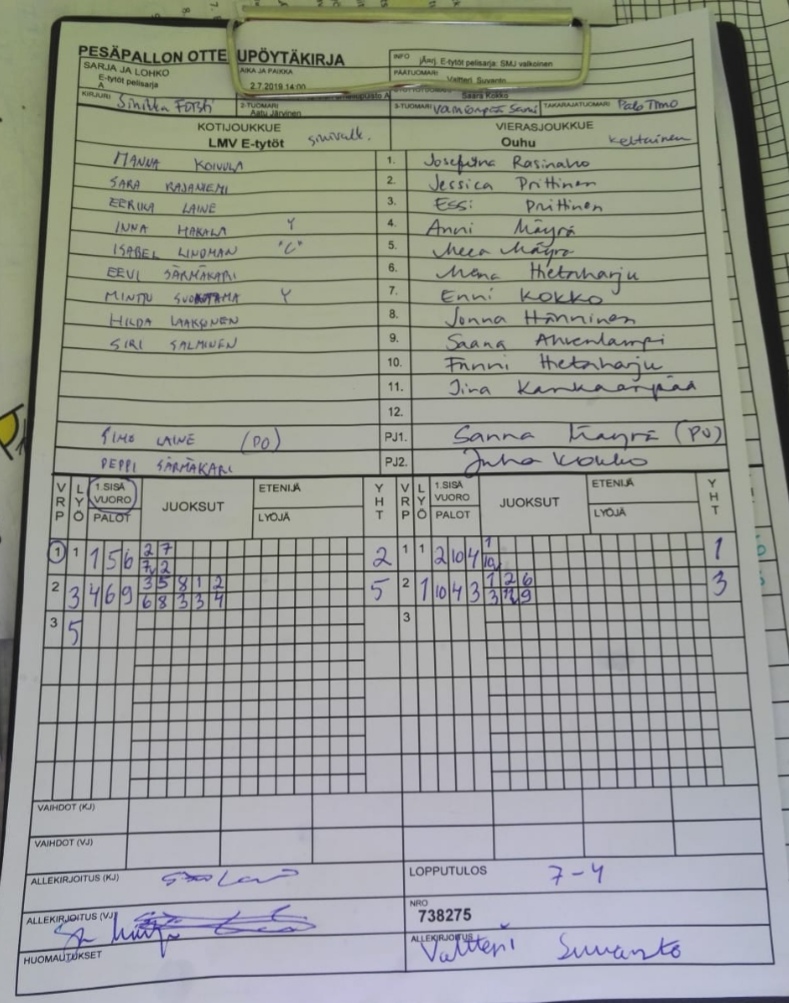 PESÄPALLON OTTELUPÖYTÄKIRJA
SARJA JA LOHKO
E-tytöt pelisarja
A
AIKA JA PAIKKA
2.7.2019 14:00
INFO
(Äm). E-tytöt pelisarja: SMJ valkoinen
PÄÄTUOMARI
Valtteri Suvanto
KIRJURI Sinikka
2-TUOMARI
Aatu Järvinen
Saara Kokko
3-TUOMARI
TAKARAJATUOMARI Palo Timo
KOTIJOUKKUE
LMV E-tytöt sinivalk.
VIERASJOUKKUE
Ouhu keltainen
MANNA KOIVULA 1. Josefiina Rasinaho
SARA RAJANIEMI 2. Jessica Prittinen
EERIKA LAINE 3. Essi Prittinen
INNA HAKALA Y 4. Anni Mäyrä
ISABEL LINDMAN "C" 5. Meea Mäyrä
EEVI SÄRMÄKARI 6. Mena Hietaharju
MINTTU Y 7. Enni Kokko
HILDA LAAKSONEN 8. Jonna Hänninen
SIRI SALMINEN 9. Saana Ahvenlampi
10. Fanni Hietaharju
11. Jina Kankaanpää
12.
SIMO LAINE (PO) PJ1. Sanna Mäyrä (PJ)
PEPPI SÄRMÄKARI PJ2. Juha Kokko
VRP LYÖ 1.SISÄ VUORO PALOT JUOKSUT ETENIJÄ LYÖJÄ YHT VRP LYÖ 1.SISÄ VUORO PALOT JUOKSUT ETENIJÄ LYÖJÄ YHT
1 1 1 5 6 2 7 2 1 1 2 10 4 1 1
7 2 10
2 3 4 6 9 3 5 8 1 2 5 2 1 10 4 3 1 2 6 3
6 8 3 3 4 3 9
3 5 3
VAIHDOT (KJ)
VAIHDOT (VJ)
ALLEKIRJOITUS (KJ)
LOPPUTULOS 7-4
ALLEKIRJOITUS (VJ)
NRO
738275
HUOMAUTUKSET
ALLEKIRJOITUS
Valtteri Suvanto